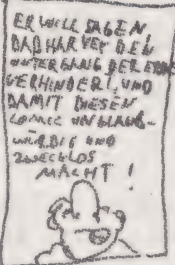 ER WILL SAGEN,
DAß HARVEY DEN
UNTERGANG DER ERDE
VERHINDERT UND
DAMIT DIESEN
COMIC UNGLAUB-
WÜRDIG UND
ZWECKLOS
MACHT!